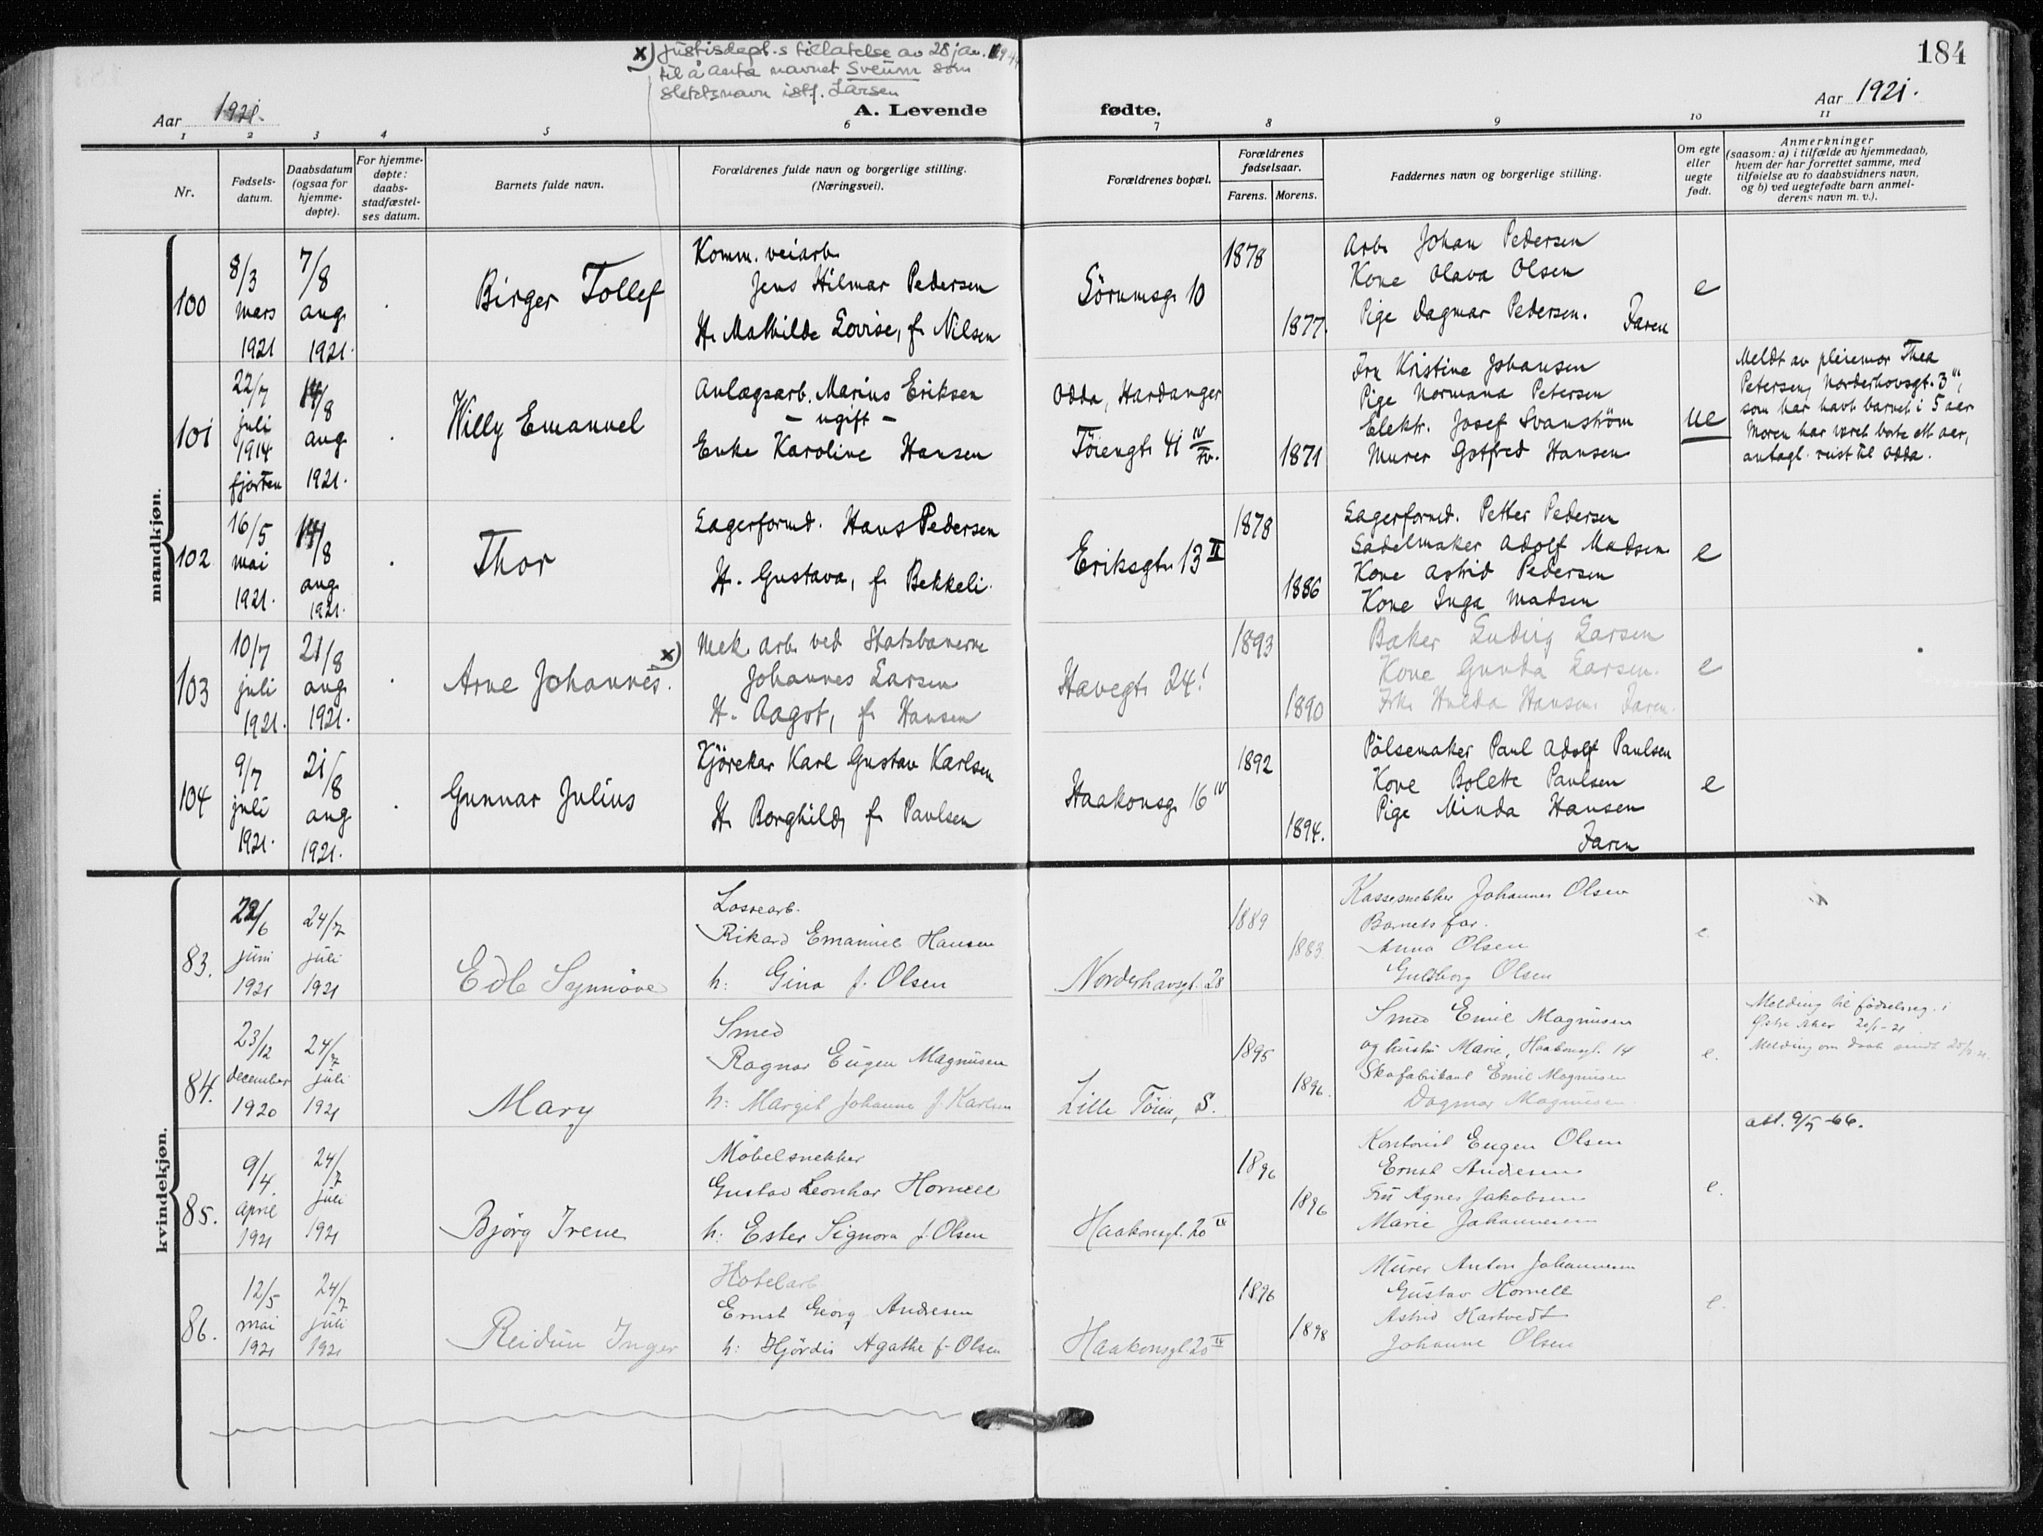 x) Justisdept.s tillatelse av 28 jan.
til å anta navnet Sveum som
slektsnavn istf. Larsen
184
Aar 1921.
A. Levende fødte.
Aar 1921.
1 2 3 4 5 6 7 8 9 10 11
Nr.
Fødsels-
datum.
Daabsdatum
(ogsaa for
hjemme-
døpte).
For hjemme-
døpte:
daabs-
stadfæstel-
ses datum.
Barnets fulde navn.
Forældrenes fulde navn og borgerlige stilling.
(Næringsvei).
Forældrenes bopæl.
Forældrenes
fødselsaar.
Farens. Morens.
Faddernes navn og borgerlige stilling.
Om egte
eller
uegte
født.
Anmerkninger
(saasom: a) i tilfælde av hjemmedaab,
hvem der har forrettet samme, med
tilføielse av to daabsvidners navn,
og b) ved uegtefødte barn anmel-
derens navn m. v.).
mandkjøn.
100
8/3
mars
1921
7/8
aug.
1921.
Birger Tollef
Komm. veiarb.
Jens Hilmar Pedersen
H. Mathilde Lovise, f. Nilsen
Sörumsg. 10
1878
1877.
Arb. Johan Pedersen
Kone Olava Olsen
Pige Dagmar Pedersen. Faren
e
101
22/7
juli
1914
fjorten
14/8
aug
1921.
Willy Emanuel
Anlægsarb. Marius Eriksen
- ugift -
Enke Karoline Hansen
Odda, Hardanger
Töiengt. 41 IV/IV.
1871
Fru Kristine Johansen
Pige Normana Petersen
Elektr. Josef Svanström
Murer Gotfred Hansen
ue
Meldt av pleiemor Thea
Petersen, Norderhovsgt. 3 III,
som har havt barnet i 5 aar
Moren har været borte ett aar,
antagl. reist til Odda.
102
16/5
mai
1921.
14/8
aug.
1921.
Thor
Lagerformd. Hans Pedersen
H. Gustava, f. Bekkeli.
Eriksgt. 13 II
1878
1886
Lagerformd. Petter Pedersen
Sadelmaker Adolf Madsen
Kone Astrid Pedersen
Kone Inga Madsen
e
103
10/7
juli
1921.
21/8
aug.
1921.
Arne Johannes. x)
Mek. arb. ved Statsbanerne
Johannes Larsen
H. Aagot, f. Hansen
Havegt. 24 I
1893
1890
Baker Ludvig Larsen
Kone Gunda Larsen.
Frk. Hulda Hansen. Faren.
e
104
9/7
juli
1921.
21/8
aug
1921.
Gunnar Julius
Kjörekar Karl Gustav Karlsen
H. Borghild, f. Paulsen
Haakonsg. 16 IV
1892
1894.
Pölsemaker Paul Adolf Paulsen
Kone Bolette Paulsen
Pige Minda Hansen
Faren
e
kvindekjøn.
83.
22/6
juni
1921
24/7
juli
1921
Edle Synnöve
Lossearb.
Rikard Emanuel Hansen
h: Gina f. Olsen
Norderhovsgt. 28
1889
1883.
Kassesnekker Johannes Olsen
Barnets far.
Anna Olsen
Gulborg Olsen
e.
84.
23/12
december
1920
24/7
juli
1921
Mary
Smed
Ragnar Eugen Magnusen
h: Margit Johanne f. Karlsen
Lille Töien, S.
1895
1896.
Smed Emil Magnusen
og hustru Marie, Haakonsgt. 14
Skofabrikant Emil Magnusen
Dagmar Magnusen
e.
Melding til fødselsreg. i
Østre Aker
Melding om daab sendt
att. 9/5-66.
85.
9/4
april
1921
24/7
juli
1921
Bjørg Irene
Möbelsnekker
Gustav Leonhar Hornell
h: Ester Signora f. Olsen
Haakonsgt. 20 IV
1896
1896
Kontorist Eugen Olsen
Ernst Andresen
Fru Agnes Jakobsen
Marie Johannesen
e.
86.
12/5
mai
1921
24/7
juli
1921
Reidun Inger
Hotelarb.
Ernst Georg Andresen
h: Hjördis Agathe f. Olsen
Haakonsgt. 20 IV
1896
1898
Murer Anton Johannesen
Gustav Hornell
Astrid Hartvedt
Johanne Olsen
e.